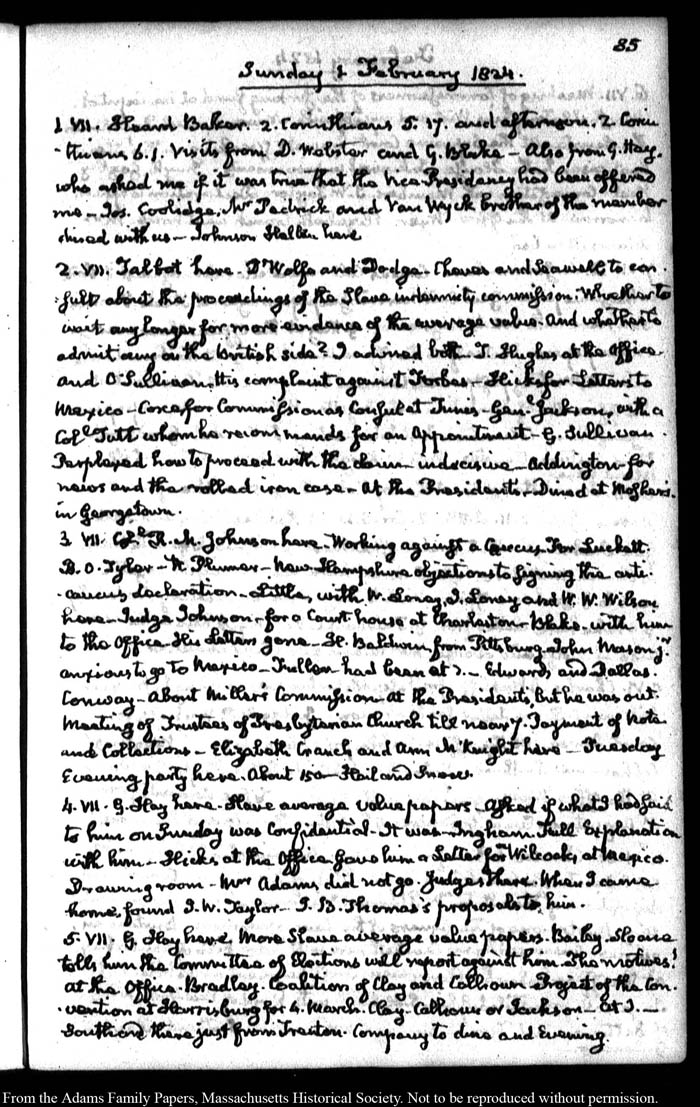 85
Sunday 1 February 1824.
1. VII. Heard Baker. 2. Corinthians 5. 17. and afternoon. 2. Corin
-thians 6. 1. Visits from D. Webster and G. Blake – Also from G. Hay.
who asked me if it was true that the Vice Presidency had been offered
me – Jos. Coolidge, Mr Pedrick and Van Wyck brother of the member
dined with us – Johnson Hellen here
2. VII. Talbot here – D'Wolfe and Dodge – Cheves and Seawell to con
-sult about the proceedings of the Slave indemnity commission. Whether to
wait any longer for more evidence of the average value. And whether to
admit any on the British side? I advised both. J. Hughes at the Office.
and O'Sullivan. His complaint against Forbes – Hicks for Letters to
Mexico – Coxe for Commission as Consul at Tunis – Genl Jackson, with a
Coll Tutt whom he recommends for an Appointment – G. Sullivan.
Perplexed how to proceed with the claim – indecisive – Addington – for
news and the rolled iron case – At the President's – Dined at Mosher's.
in Georgetown.
3. VII. Coll R. M. Johnson here – Working against a Caucus. For Luckett.
B. O. Tyler – W. Plumer – New Hampshire objections to signing the anti-
-caucus declaration – Little, with W. Loney, J. Loney and W. W. Wilson
here – Judge Johnson – for a Court house at Charleston – Blake – with him
to the Office. His Letters gone – H. Baldwin, from Pittsburg – John Mason jr.
anxious to go to Mexico – Fuller had been at – Edwards and Dallas.
Conway – About Miller's Commission – At the President's, but he was out.
Meeting of Trustees of Presbyterian Church till near 7. Payment of Note
and Collections – Elizabeth Cranch and Ann McKnight here – Tuesday
Evening party here. About 150 – Hail and Snow.
4. VII. G. Hay here – Slave average value papers – Asked if what I had said
to him on Sunday was Confidential – It was – Ingham Full Explanation
with him – Hicks at the Office Gave him a Letter for Wilcocks at Mexico.
Drawing room – Mrs Adams did not go. Judges there. When I came
home, found J. W. Taylor – J. B. Thomas's proposals to him.
5. VII. G. Hay here. More Slave average value papers. Bailey. Sloane
tells him the Committee of Elections will report against him. The motives!
At the Office. Bradley. Coalition of Clay and Calhoun. Project of the Con
-vention at Harrisburg for 4. March. Clay. Calhoun or Jackson –
Southard there just from Trenton. Company to dine and Evening.
From the Adams Family Papers, Massachusetts Historical Society. Not to be reproduced without permission.